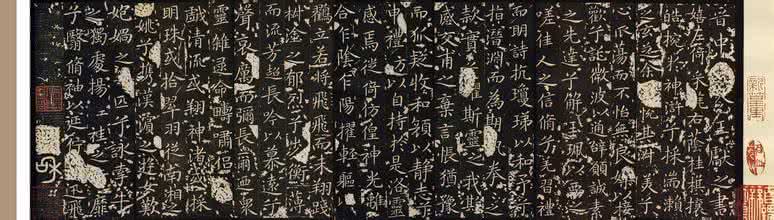 晉中書令王獻之書
嬉左倚采旄右蔭桂旗攘
皓腕於神滸兮采湍瀨
之玄芝余情悅其淑美兮
心振蕩而不怡無良媒以接
歡兮託微波以通辭願誠素
之先達兮解玉珮而要之
嗟佳人之信脩兮羌習禮
而明詩抗瓊珶以和予兮
指潛淵而為期執拳之
款實兮懼斯靈之我欺
感交甫之棄言悵猶豫
而狐疑收和顏以靜志兮
申禮防以自持於是洛靈
感焉徙倚傍徨神光離
合乍陰乍陽擢輕軀以
鶴立若將飛而未翔踐
椒塗之郁烈兮步衡薄
而流芳超長吟以慕遠兮
聲哀厲而彌長爾迺衆
靈雜遝命疇嘯侶或
戲清流或翔神渚或採
明珠或拾翠羽從南湘之二
姚兮攜漢濱之遊女歎
匏媧之無匹兮詠牽牛
之獨處揚輕袿之猗靡
兮翳脩袖以延佇體迅飛